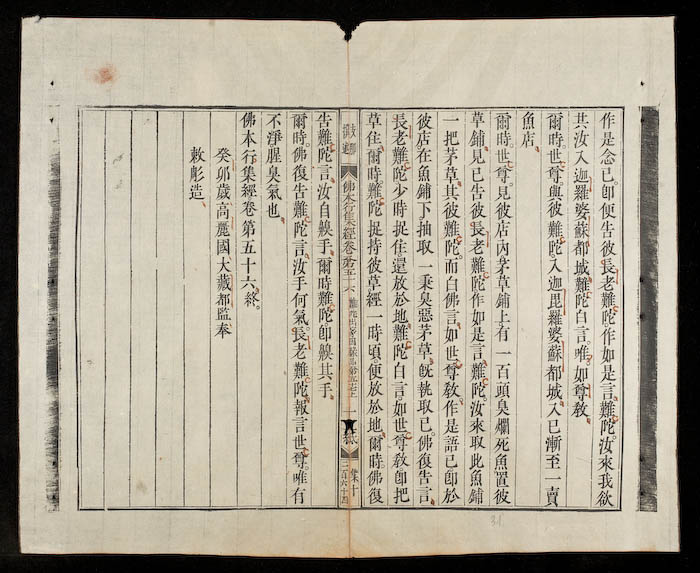 作是念已。卽便告彼長老難陀。作如是言。難陀。汝來我欲
共汝入迦羅婆蘇都城。難陀白言。唯。如尊教。
爾時。世尊。與彼難陀。入迦毘羅婆蘇都城。入已漸至一賣
魚店。
爾時。世尊。見彼店內茅草鋪上。有一百頭臭爛死魚。置彼
草鋪。見已告彼長老難陀。作如是言。難陀。汝來取此魚鋪
一把茅草。其彼難陀。而白佛言。如世尊教。作是語已。卽於
彼店在魚鋪下。抽取一秉臭惡茅草。旣執取已。佛復告言。
長老難陀。少時捉住。還放於地。難陀白言。如世尊教。卽把
草住。爾時。難陀。捉持彼草。經一時頃。便放於地。爾時。佛復
佛本行集經卷第五十六
三百六十四
集十
告難陀言。汝自齅手。爾時難陀。卽齅其手。
爾時。佛復告難陀言。汝手何氣。長老難陀。報言世尊。唯有
不淨腥臭氣也。
佛本行集經卷第五十六。終。
癸卯歲高麗國大藏都監奉
敕彫造
31